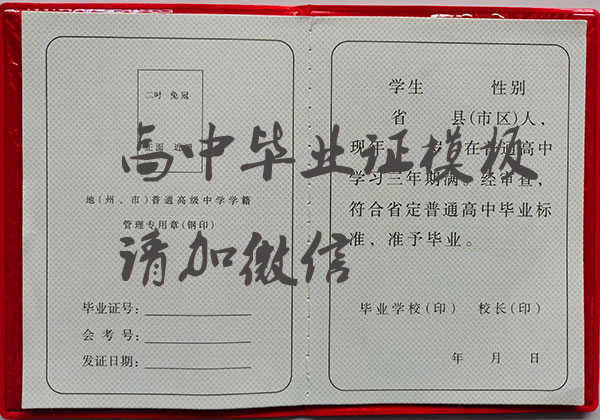 二吋 免冠
正面 近
地(州、市)普通高级中学学籍
管理专用章(钢印)
毕业证号:
会考号:
发证日期:
学生 性别
省 县(市区)人,
现年 岁,在普通高中
学习三年期满。经审查,
符合省定普通高中毕业标
准,准予毕业。
毕业学校(印) 校长(印)
年 月 日
高中毕业证模板
请加微信